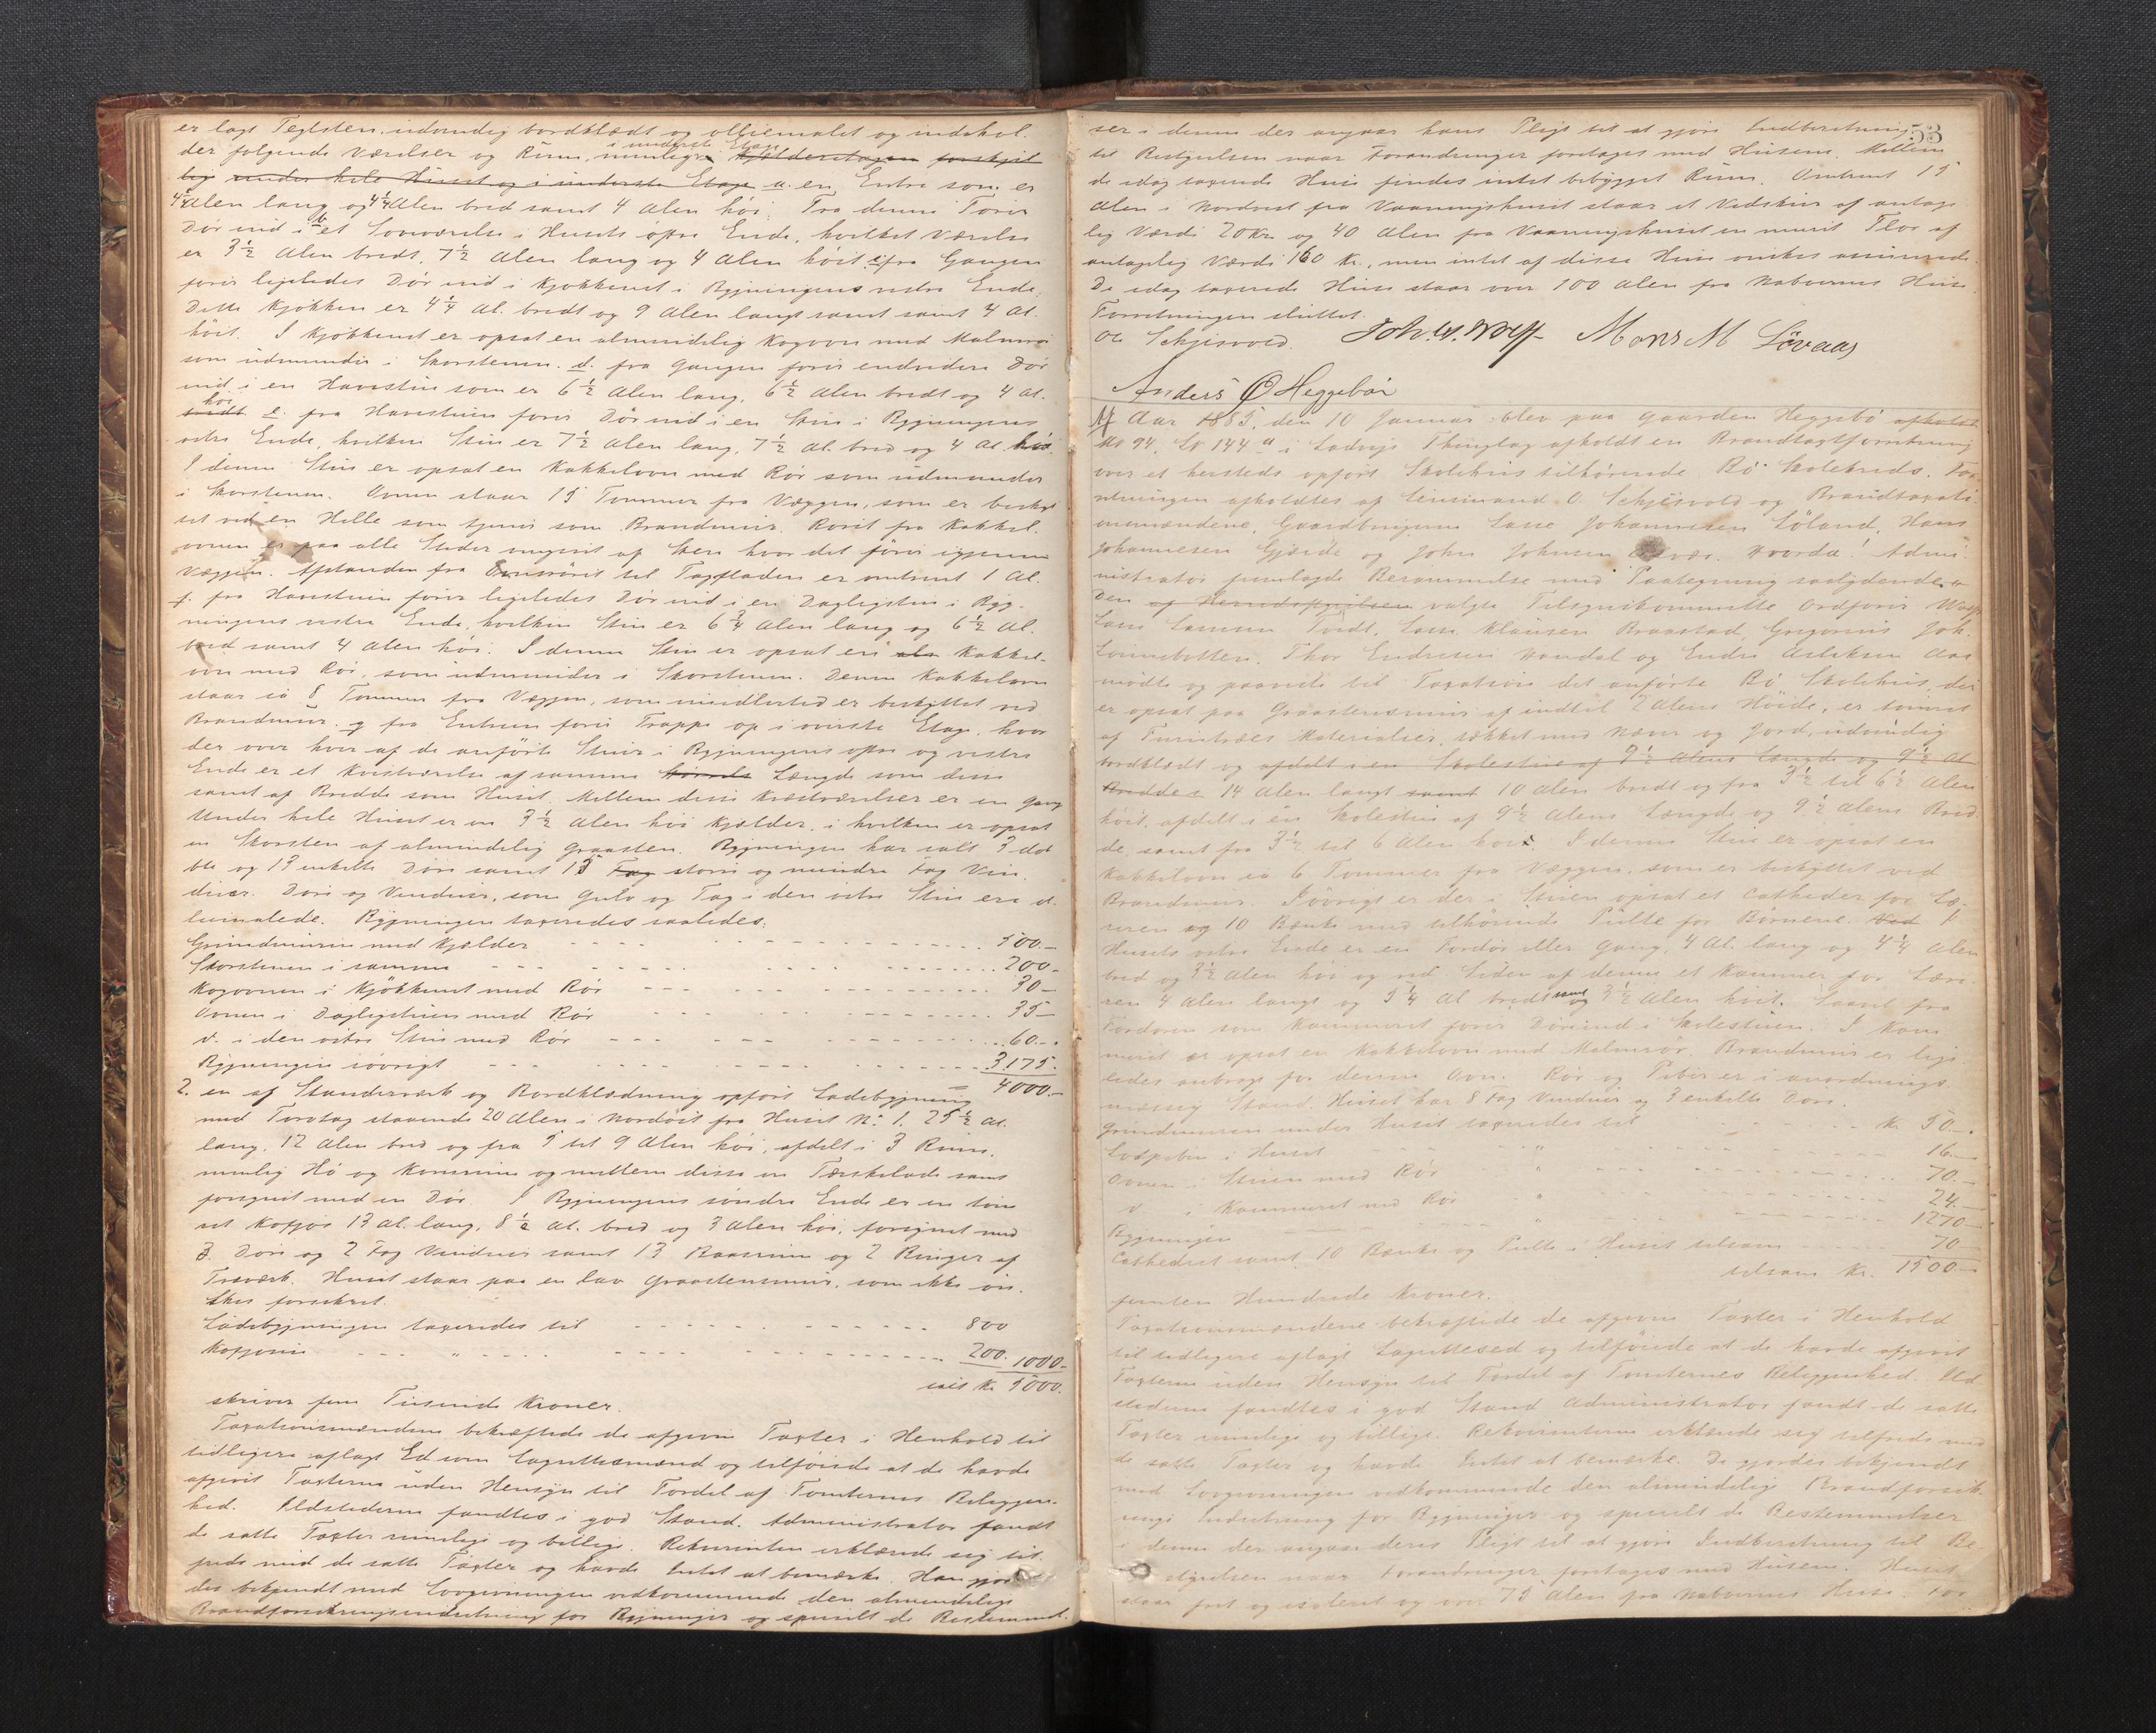 er lagt Teglsten, udvendig bordklædt og oliemalet og indehol-
der følgende Værelser og Rum, nemlig: i underste Etage kjælderetagen forskjel
lig under hele Huset og i underste Etage a. en Entre som er
4 1/4 Alen lang og 4 1/4 Alen bred samt 4 Alen høi. Fra denne fører
Dør ind i b. et Soveværelse i Husets østre Ende, hvilket Værelse
er 3 1/2 Alen bredt, 7 1/2 Alen lang og 4 Alen høit. c. fra Gangen
fører ligeledes Dør ind i Kjøkkenet i Bygningens vestre Ende.
Dette Kjøkken er 4 1/4 Al. bredt og 9 Alen langt samt samt 4 Al.
høit. I Kjøkkenet er opsat en almindelig Kogovn med Malmrør
som udmunder i Skorstenen. d. fra Gangen fører endvidere Dør
ind i en Havestue som er 6 1/2 Alen lang, 6 1/2 Alen bredt og 4 Al.
bredt høi e. fra Havestuen fører Dør ind i en Stue i Bygningens
østre Ende, hvilken Stue er 7 1/2 Alen lang, 7 1/2 Al. bred og 4 Al. høi.
I denne Stue er opsat en Kakkelovn med Rør som udmunder
i Skorstenen. Ovnen staar 15 Tommer fra Væggen, som er beskyt
tet ved en Helle som tjener som Brandmur. Røret fra Kakkel-
ovnen er paa alle Steder omgivet af Sten hvor det fører igjennem
Væggen. Afstanden fra Ovnsrøret til Tagfladen er omtrent 1 Al.
f. fra Havestuen fører ligeledes Dør ind i en Dagligstue i Byg-
ningens vestre Ende, hvilken Stue er 6 3/4 Alen lang og 6 1/2 Al.
bred samt 4 Alen høi. I denne Stue er opsat en Kakkel-
ovn med Rør, som udmunder i Skorstenen. Denne Kakkelovn
staar ca 8 Tommer fra Væggen, som imidlertid er beskyttet ved
Brandmur. g fra Entreen fører Trappe op i øverste Etage, hvor
der over hver af de anførte Stuer i Bygningens østre og vestre
Ende er et Kvistværelse af samme Længde som disse
samt af Bredde som Huset. Mellem disse Kvistværelser er en Gang
Under hele Huset er en 3 1/2 Alen høi Kjælder, i hvilken er opsat
en Skorsten af almindelig Graasten. Bygningen har ialt 3 dob
ble og 13 enkelte Døre samt 15 Fag større og mindre Fag Vin-
duer. Døre og Vinduer, som Gulv og Tag i den østre Stue ere o-
liemalede. Bygningen taxeredes saaledes:
Grundmuren med Kjælder 500.-
Skorstenen i samme 200.-
Kogovnen i Kjøkkenet med Rør 30-
Ovnen i Dagligstuen med Rør 35-
d. i den østre Stue med Rør 60.-
Bygningen iøvrigt 3175.
= 4000.-
2. en af Stenderværk og Bordklædning opført Ladebygning
med Torvtag staaende 20 Alen i Nordøst fra Huset No. 1. 25 1/2 Al.
lang, 12 Alen bred og fra 5 til 9 Alen høi, afdelt i 3 Rum,
nemlig Hø og Kornrum og mellem disse en Tærskelade samt
forsynet med en Dør. I Bygningens søndre Ende er en tøm
ret Kofjøs 13 Al. lang, 8 1/2 Al. bred og 3 Alen høi, forsynet med
3 Døre og 2 Fag Vinduer samt 13 Baaserum og 2 Binger af
Træværk. Huset staar paa en lav Graastensmur, som ikke øn-
skes forsikret.
Ladebygningen taxeredes til 800
Kofjøsen " 200. 1000-
ialt Kr 5000.
skriver fem Tusinde Kroner.
Taxationsmændene bekræftede de afgivne Taxter i Henhold til
tidligere aflagt Ed som Lagrettesmænd og tilføiede at de havde
afgivet Taxterne uden Hensyn til Fordel af Tomternes Beliggen-
hed. Ildstederne fandtes i god Stand. Administrator fandt
de satte Taxter rimelige og billige. Rekvirenten erklærede sig til-
freds med de satte Taxter og havde Intet at bemærke. Han gjor
des bekjendt med Lovgivningen vedkommende den almindelige
Brandforsikringsindretning for Bygninger og specielt de Bestemmel-
53
ser i denne der angaar hans Pligt til at gjøre Indberetning
til Bestyrelsen naar Forandringer foretages med Husene. Mellem
de idag taxerede Huse findes intet bebygget Rum. Omtrent 15
Alen i Nordvest fra Vaaningshuset staar et Vedskur af antage
lig Værdi 20 Kr. og 40 Alen fra Vaaningshuset en muret Flor af
antagelig Værdi 160 Kr., men intet af disse Huse ønskes assurerede.
De idag taxerede Huse staar over 100 Alen fra Naboernes Huse.
Forretningen sluttet.
Ol Schjesvold. Joh. W. Wolff Mons M Løvaas
Anders O Heggebø
Aar 1885, den 10 Januar blev paa Gaarden Heggebø afholdt
No 94, Lv 144 a i Ladvigs Thinglag afholdt en Brandtaxtforretning
over et hersteds opført Skolehus tilhørende Bø Skolekreds. For
retningen afholdtes af Lensmand O Schjesvold og Brandtaxati
onsmændene, Gaardbrugerne Lasse Johannesen Løland, Hans
Johannesen Gjærde og John Johnsen . Hvorda! Admi
nistrator fremlagde Berammelse med Paategning saalydende
Den af Herredsstyrelsen valgte Tilsynskommitte Ordfører Wolff
Lasse Larssen Tordt, Lasse Klausen Braastad, Gregorius Joh.
Lonnebotten, Thor Endresen Handal og Endre Aslaksen Aas
mødte og paaviste til Taxation det anførte Bø Skolehus, der
er opsat paa Graastensmur af indtil 2 Alens Høide, er tømret
af Furutræes Materialier, tækket med Næver og Jord, udvendig
bordklædt og afdelt i en Skolestue af 9 1/2 Alens Længde og 9 1/2 Al
Bredde 14 Alen langt samt 10 Alen bredt og fra 3 1/2 til 6 1/2 Alen
høit, afdelt i en Skolestue af 9 1/2 Alens Længde og 9 1/2 Alens Bred
de, samt fra 3 1/2 til 6 Alen høi. I denne Stue er opsat en
Kakkelovn ca 6 Tommer fra Væggen, som er beskyttet ved
Brandmur. Iøvrigt er der i Stuen opsat et Catheder for Læ-
reren og 10 Bænke med tilhørende Pulte for Børnene. Ved I
Husets østre Ende er en Fordør eller Gang, 4 Al. lang og 4 1/4 Alen
bred og 3 1/2 Alen høi og ved Siden af denne et Kammer for Lære
ren 4 Alen langt og 5 1/4 Al bredt samt og 3 1/2 Alen høit. Saavel fra
Fordøren som Kammeret fører Dør ind i Skolestuen. I Kam
meret er opsat en Kakkelovn med Malmrør. Brandmur er lige
ledes anbragt for denne Ovn. Rør og Piber er i anordnings
mæssig Stand. Huset har 8 Fag Vinduer og 3 enkelte Døre.
Grundmuren under Huset taxeredes til Kr. 50-.
i Huset " 16.-
Ovnen i Stuen med Rør " 70.-
d. i Kammeret med Rør " 24.-
Bygningen " 1270-
Cathedret samt 10 Bænke og Pulte i Huset tilsam 70
tilsam Kr. 1500.-
femten Hundrede Kroner.
Taxationsmændene bekræftede de afgivne Taxter i Henhold
til tidligere aflagt Lagrettesed og tilføiede at de havde afgivet
Taxterne uden Hensyn til Fordel af Tomternes Beliggenhed. Ild
stederne fandtes i god Stand Administrator fandt de satte
Taxter rimelige og billige. Rekvirenterne erklærede sig tilfreds med
de satte Taxter og havde Intet at bemærke. De gjordes bekjendt
med Lovgivningen vedkommende den almindelige Brandforsik-
rings Indretning for Bygninger og specielt de Bestemmelser
i denne der angaar deres Pligt til at gjøre Indberetning til Be-
styrelsen naar Forandringer foretages med Husene. Huset
staar frit og isoleret og over 75 Alen fra Naboernes Huse. For